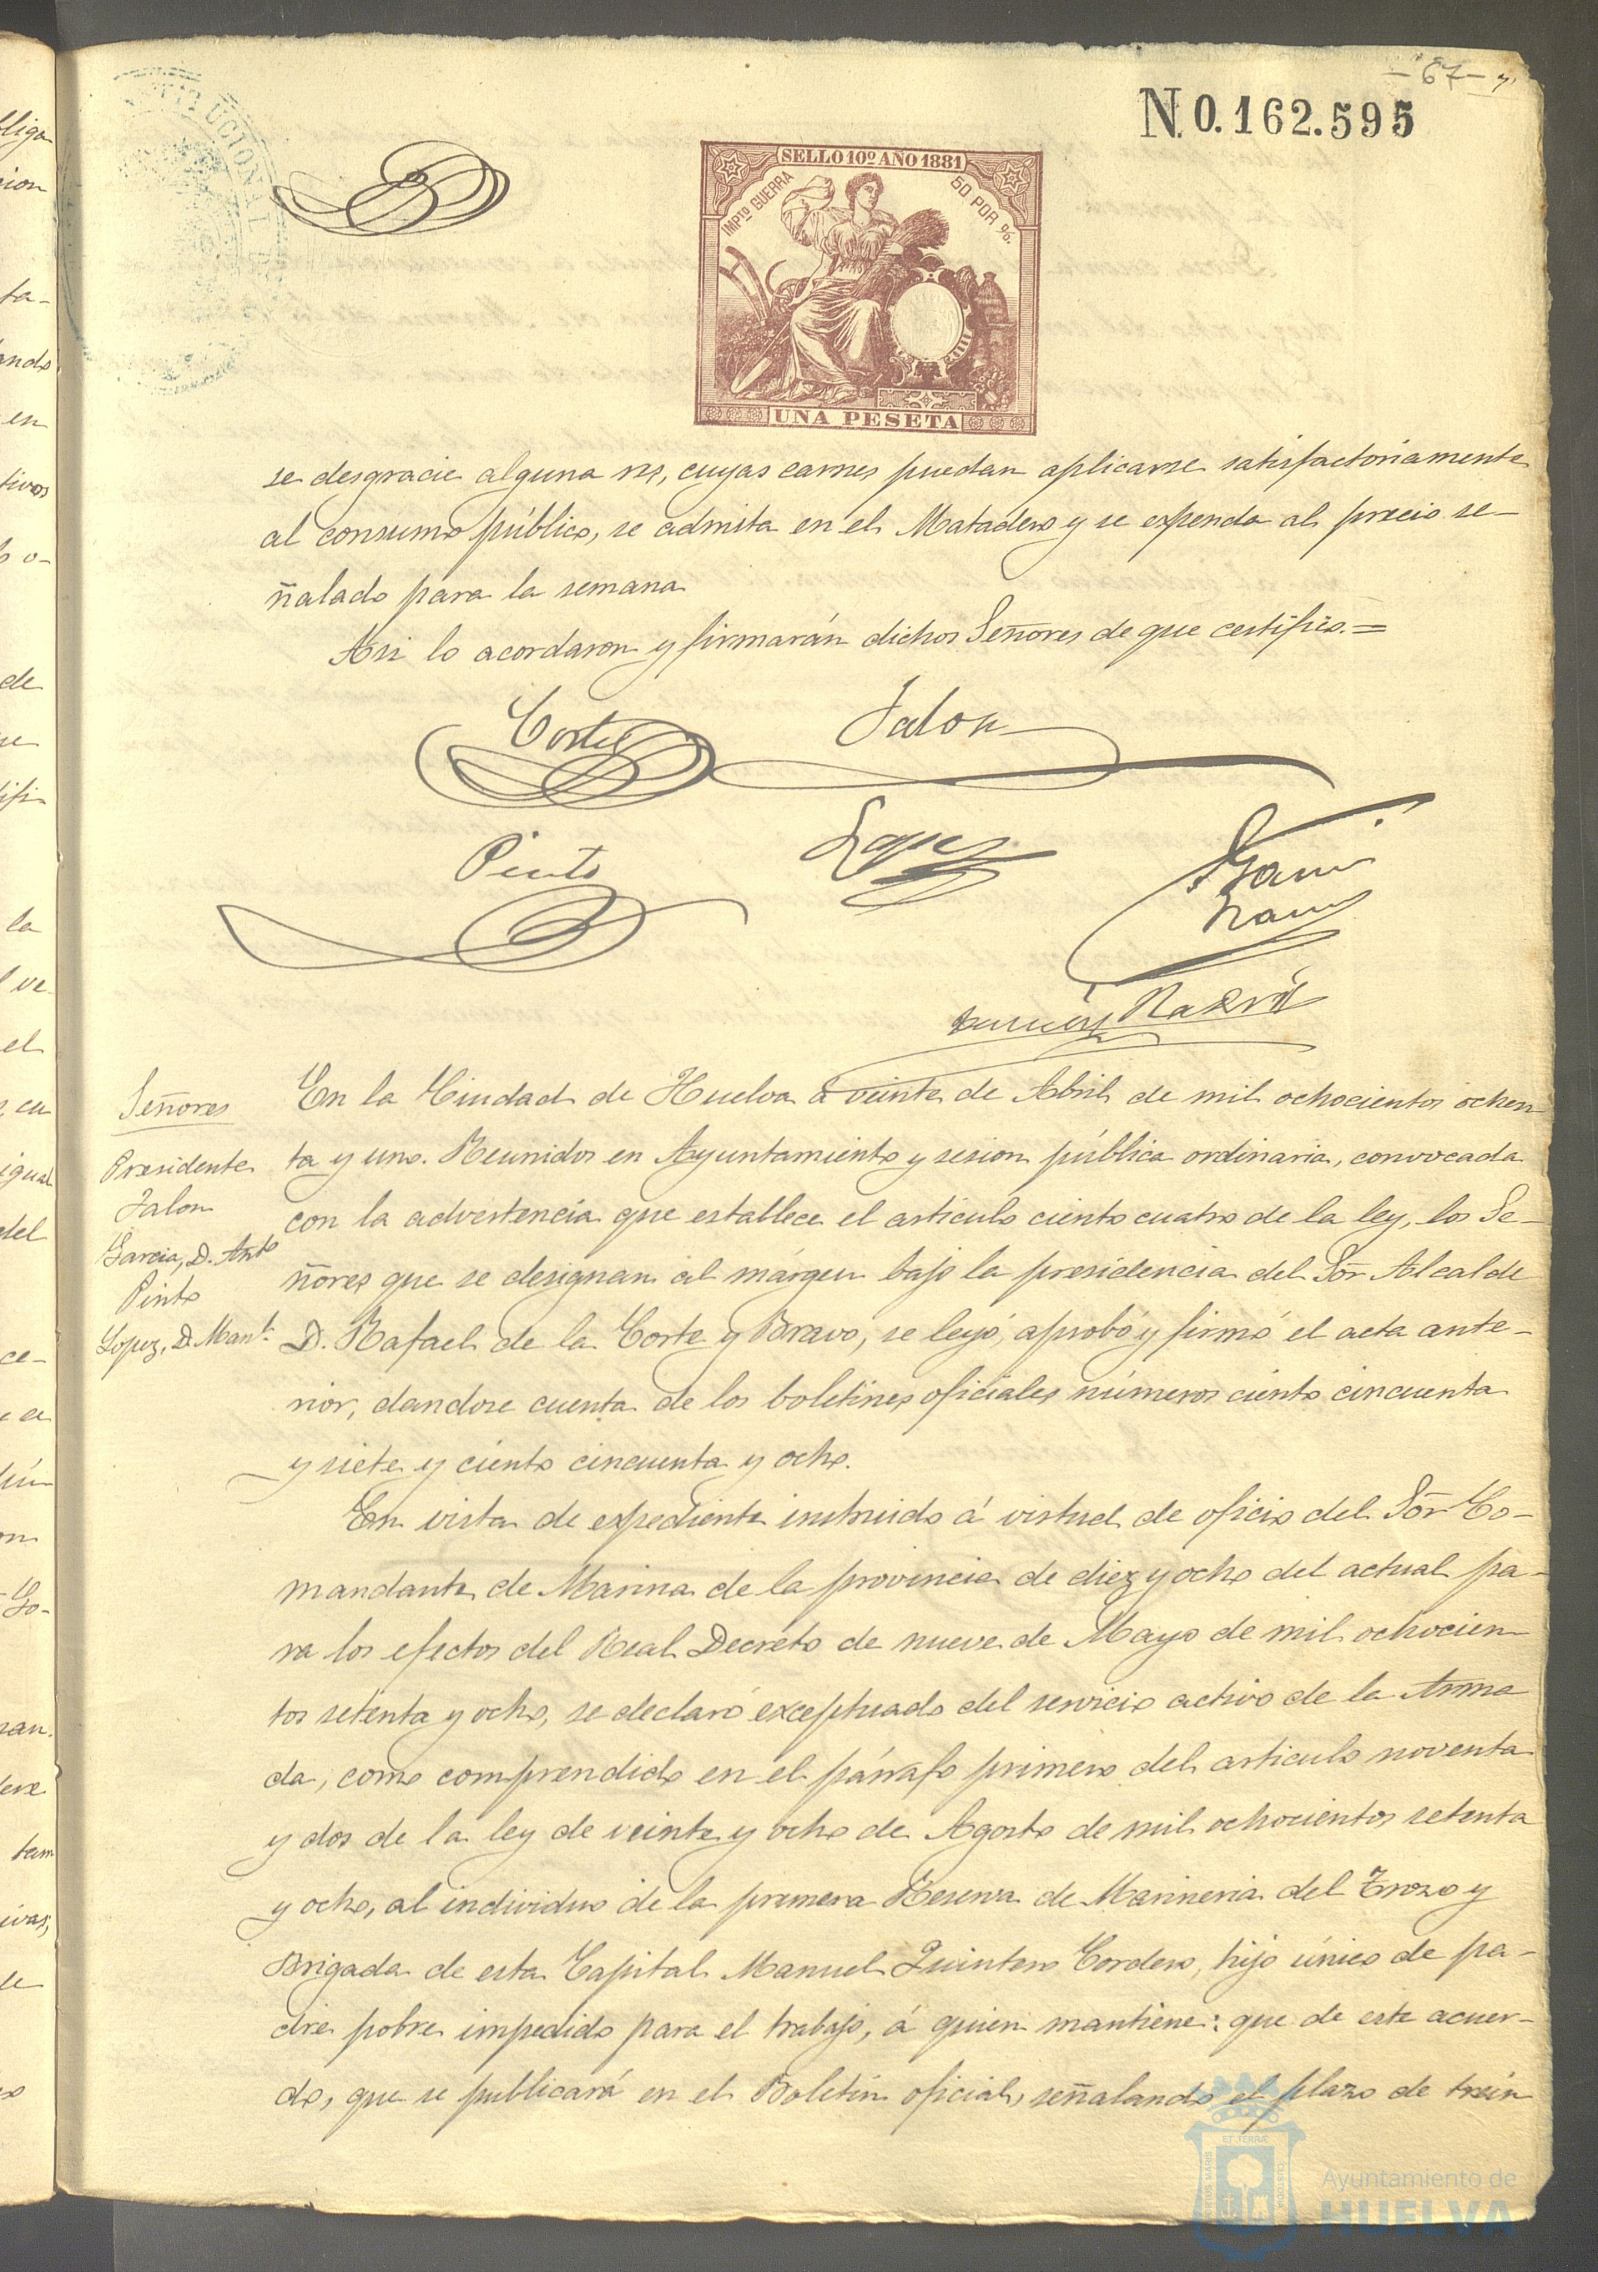 - 67 -
N. 0.162.595
SELLO 10º AÑO 1881
IMPTO GUERRA
50 POR %.
UNA PESETA
se desgracie alguna res, cuyas carnes puedan aplicarse satisfactoriamente
al consumo público, se admita en el Matadero y se expenda al precio se-
ñalado para la semana
Asi lo acordaron y firmarán dichos Señores de que certifico.=
Corte
Jalon
Pinto
Lopez
Señores
Presidente
Jalon
Garcia, D. Antº
Pinto
Lopez, D. Manl.
En la Ciudad de Huelva á veinte de Abril de mil ochocientos ochen-
ta y uno. Reunidos en Ayuntamiento y sesion pública ordinaria, convocada
con la advertencia que establece el articulo ciento cuatro de la ley, los Se-
ñores que se designan al márgen bajo la presidencia del Sõr Alcalde
D. Rafael de la Corte y Bravo, se leyó, aprobó y firmó el acta ante-
rior, dandose cuenta de los boletines oficiales números ciento cincuenta
y siete y ciento cincuenta y ocho.
En vista de expediente instruido á virtud de oficio del Sõr Co-
mandante de Marina de la provincia de diez y ocho del actual pa-
ra los efectos del Real Decreto de nueve de Mayo de mil ochocien-
tos setenta y ocho, se declaró exceptuado del servicio activo de la Arma
da, como comprendido en el párrafo primero del articulo noventa
y dos de la ley de veinte y ocho de Agosto de mil ochocientos setenta
y ocho, al individuo de la primera Reserva de Marineria del Trozo y
Brigada de esta Capital Manuel Quintero Cordero, hijo único de pa-
dre pobre impedido para el trabajo, á quien mantiene: que de este acuer-
do, que se publicará en el Boletin oficial, señalando el plazo de trein
Ayuntamiento de
HUELVA